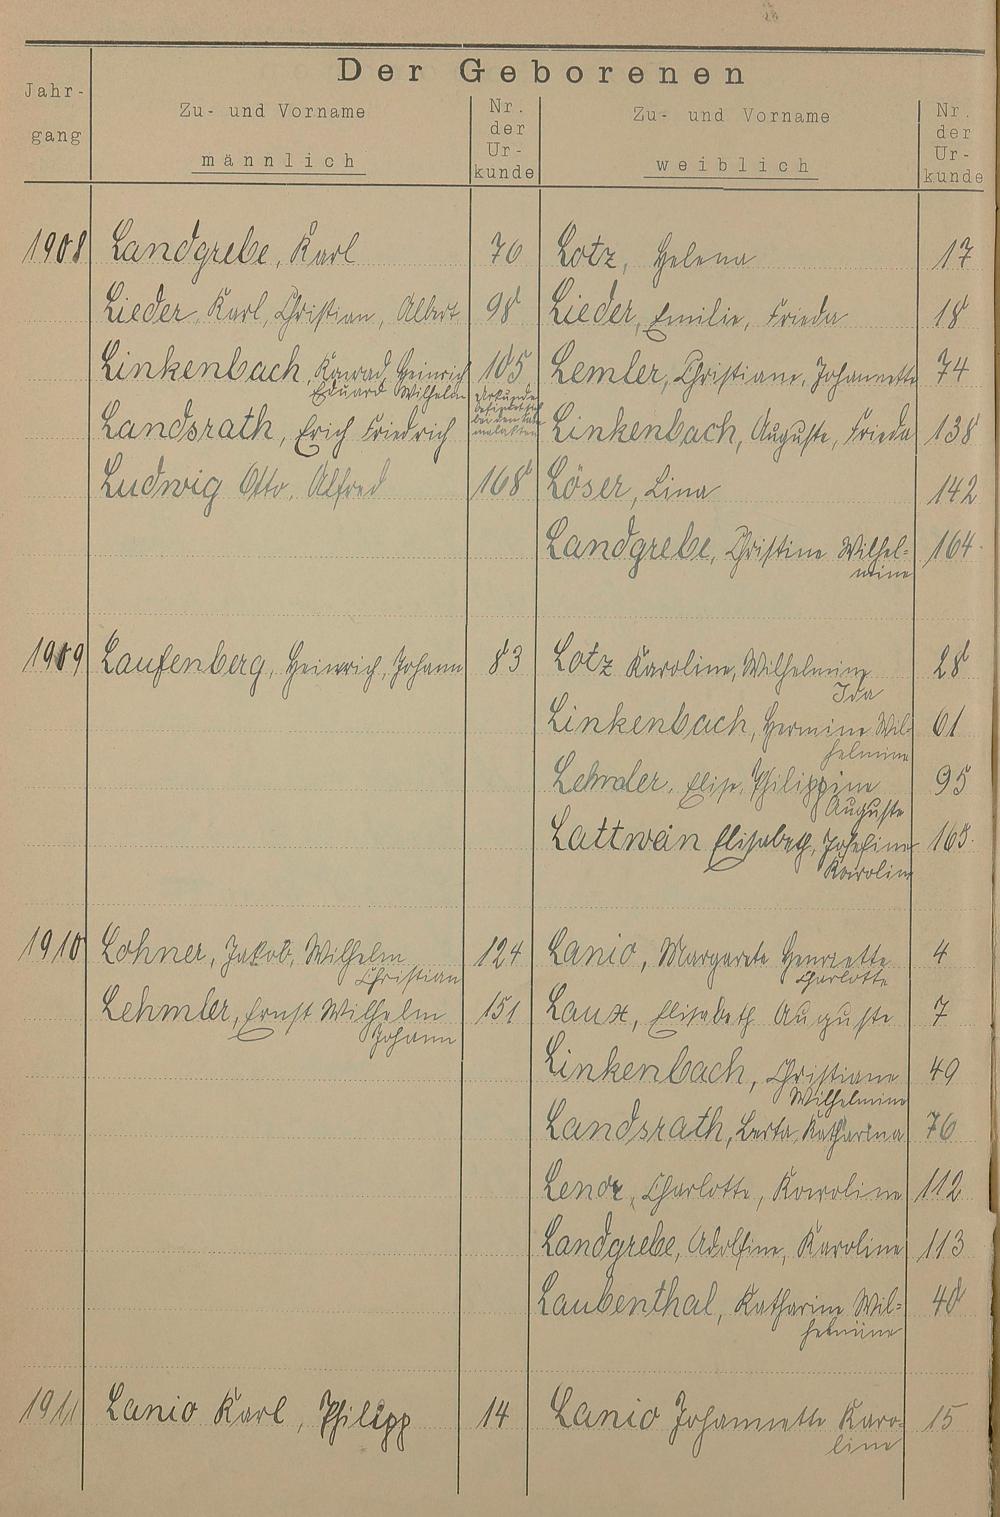 Der Geborenen
Jahr-
gang
Zu- und Vorname
männlich
Nr.
der
Ur-
kunde
Zu- und Vorname
weiblich
Nr.
der
Ur-
kunde
1908 Landgrebe, Karl 70 Lotz, Helena 17
Lieder, Karl, Christian, Albert 98 Lieder, Emilie, Frieda 18
Linkenbach, Konrad, Heinrich 105 Lemler, Christiane, Johannette 74
Eduard Wilhelm Urkunde
befindet sich
bei den
Landsrath, Erich Friedrich Linkenbach, Auguste, Frieda 138
Ludwig Otto, Alfred 168 Löser, Lina 142
Landgrebe, Christine Wilhel= 164
mine
1909 Laufenberg, Heinrich, Johann 83 Lotz Karoline, Wilhelmine 28
Ida
Linkenbach, Hermine Wil- 61
helmine
Lehmler, Elise, Philippine 95
Auguste
Lattwein Elisabeth, Josefine 165
Karoline
1910 Lohner, Jakob, Wilhelm 124 Lanio, Margarete Henriette 4
Christian Charlotte
Lehmler, Ernst Wilhelm 151 Laux, Elisabeth Auguste 7
Johann
Linkenbach, Christiane 49
Wilhelmine
Landsrath, Berta, Katharina 76
Lenor, Charlotte, Karoline 112
Landgrebe, Adolfine, Karoline 113
Laubenthal, Katharine Wil= 40
helmine
1911 Lanio Karl, Philipp 14 Lanio Johannette Karo- 15
line